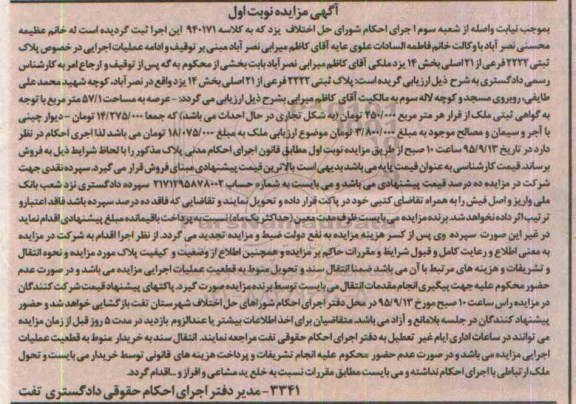 آگهی مزایده نوبت اول
بموجب نیابت واصله از شعبه سوم اجرای احکام شورای حل اختلاف یزد که به کلاسه ۹۴۰۱۷۱ این اجرا ثبت گردیده است له خانم عظیمه
محسنی نصر آباد با وکالت خانم فاطمه السادات علوی علیه آقای کاظم میرابی نصر آباد مبنی بر توقیف و ادامه عملیات اجرایی در خصوص پلاک
ثبتی ۲۲۲۲ فرعی از ۲۱ اصلی بخش ۱۴ یزد ملکی آقای کاظم میرابی نصر آباد بابت بخشی از محکوم به که پس از توقیف و ارجاع امر به کارشناس
رسمی دادگستری به شرح ذیل ارزیابی گریده است: پلاک ثبتی ۲۲۲۲ فرعی از ۲۱ اصلی بخش ۱۴ یزد واقع در نصر آباد، کوچه شهید محمد علی
طایفی، روبروی مسجد و کوچه لاله سوم به مالکیت آقای کاظم میرابی بشرح ذیل ارزیابی می گردد: - عرصه به مساحت ۵۷/۱ متر مربع با توجه
به گواهی ثبتی ملک از قرار هر متر مربع ۲۵۰/۰۰۰ تومان (به شکل تجاری در حال احداث می باشد) که جمعا ۱۴/۲۷۵/۰۰۰ تومان - دیوار چینی
با آجر و سیمان و مصالح موجود به مبلغ ۳/۸۰۰/۰۰۰ تومان موضوع ارزیابی ملک به مبلغ ۱۸/۰۷۵/۰۰۰ تومان می باشد لذا اجرای احکام در نظر
دارد در تاریخ ۹۵/۹/۱۳ ساعت ۱۰ صبح از طریق مزایده نوبت اول مطابق قانون اجرای احکام مدنی پلاک مذکور را با لحاظ شرایط ذیل به فروش
برساند. قیمت کارشناسی به عنوان قیمت پایه می باشد بدیهی است بالاترین قیمت پیشنهادی مبنای فروش قرار می گیرد. سپرده نقدی جهت
شرکت در مزایده ده درصد قیمت پیشنهادی می باشد و می بایست به شماره حساب ۲۱۷۱۲۹۵۸۷۸۰۰۲ سپرده دادگستری نزد شعب بانک
ملی واریز و اصل فیش را به همراه تقاضای کتبی خود در پاکت قرار داده و تحویل نمایند و تقاضایی که فاقد ده درصد سپرده باشد فاقد اعتبار و
ترتیب اثر داده نخواهد شد. برنده مزایده می بایست ظرف مدت معین (حداکثر یک ماه) نسبت به پرداخت باقیمانده مبلغ پیشنهادی اقدام نماید
در غیر این صورت سپرده وی پس از کسر هزینه مزایده به نفع دولت ضبط و مزایده تجدید می گردد. از نظر اجرا اقدام به شرکت در مزایده
به معنی اطلاع و رعایت کامل و قبول شرایط و مقررات حاکم بر مزایده و همچنین اطلاع از وضعیت و کیفیت پلاک مورد مزایده و نحوه انتقال
و تشریفات و هزینه های مرتبط با آن می باشد ضمنا انتقال سند و تحویل منوط به قطعیت عملیات اجرایی مزایده می باشد و در صورت عدم
حضور محکوم علیه جهت پیگیری انجام مقدمات انتقال می بایست توسط برنده مزایده صورت گیرد. پاکتهای پیشنهاد قیمت شرکت کنندگان
در مزایده راس ساعت ۱۰ صبح مورخ ۹۵/۹/۱۳ در محل دفتر اجرای احکام شوراهای حل اختلاف شهرستان تفت بازگشایی خواهد شد و حضور
پیشنهاد کنندگان در جلسه بلامانع و آزاد می باشد. متقاضیان برای اخذ اطلاعات بیشتر یا عنداللزوم بازدید در مدت ۵ روز قبل از زمان مزایده
می توانند در ساعات اداری ایام غیر تعطیل به دفتر اجرای احکام حقوقی تفت مراجعه نمایند. انتقال سند به خریدار منوط به قطعیت عملیات
اجرایی مزایده می باشد و در صورت عدم حضور محکوم علیه انجام تشریفات و پرداخت هزینه های قانونی توسط خریدار می بایست و تحول
ملک ارتباطی با اجرای احکام نداشته و می بایست مطابق مقررات نسبت به خلع ید مشاعی و افراز و ...اقدام گردد.
۳۳۴۱ - مدیر دفتر اجرای احکام حقوقی دادگستری تفت